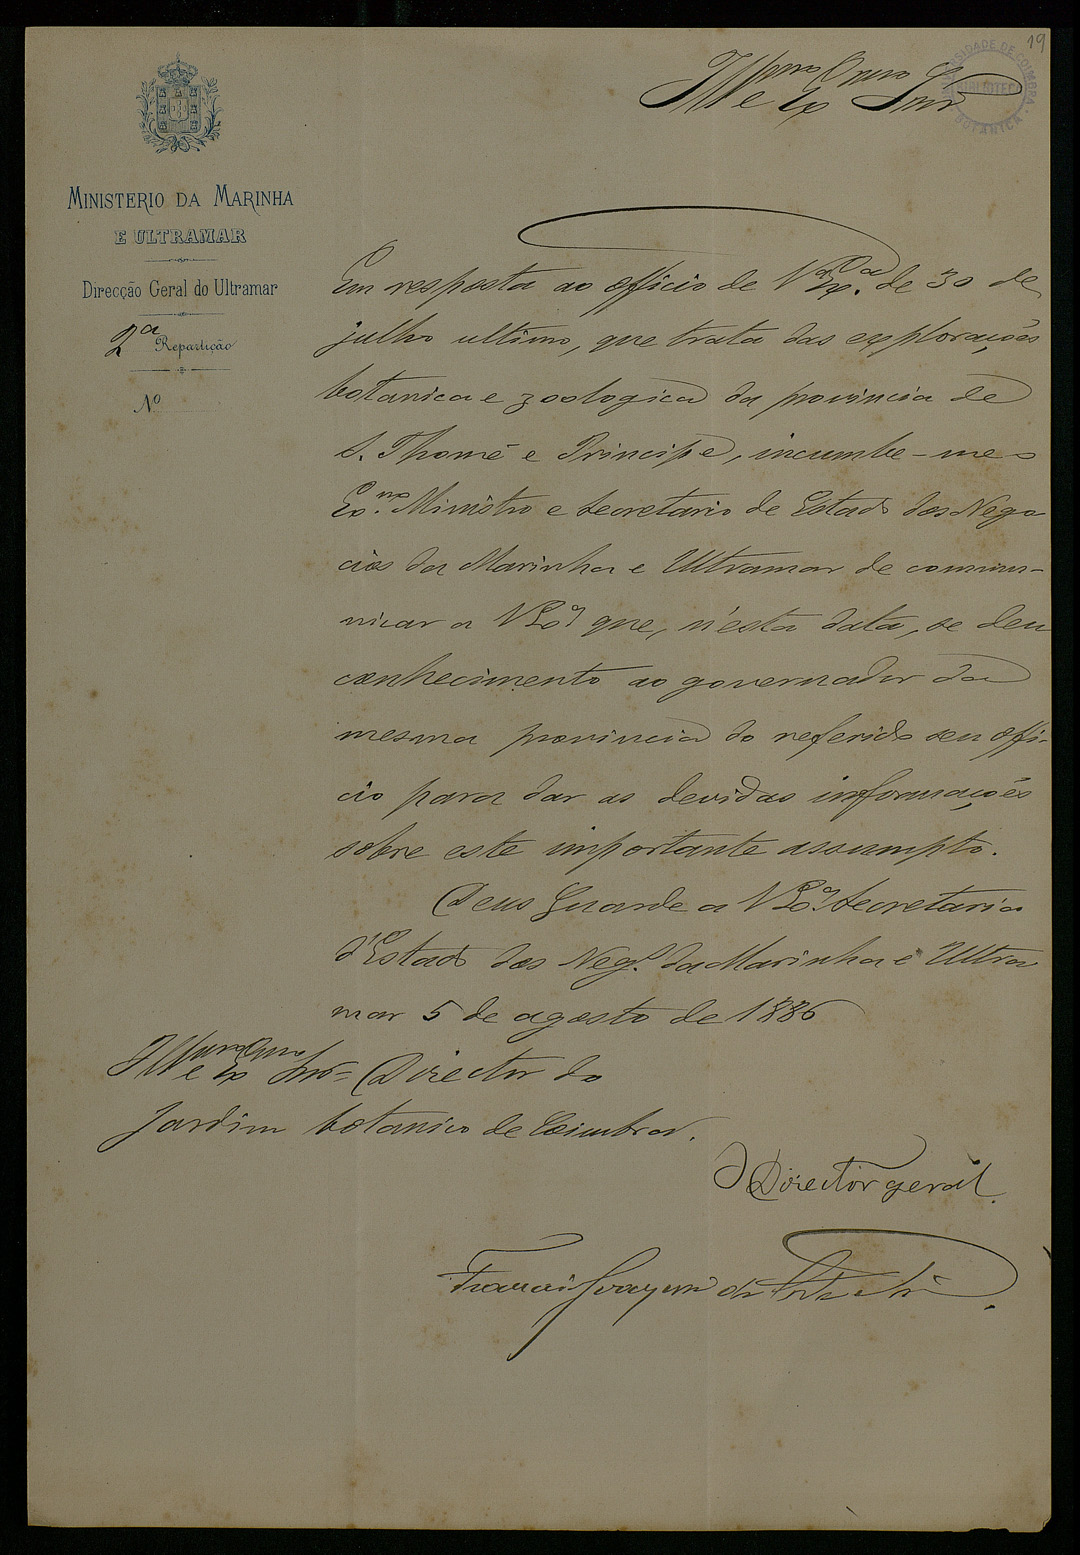 19
UNIVERSIDADE DE COIMBRA
BIBLIOTECA
BOTANICA
Ill.mo e Ex.mo Snr
MINISTERIO DA MARINHA
E ULTRAMAR
Direcção Geral do Ultramar
2ª Repartição
Nº
Em resposta ao officio de V. Ex.ª de 30 de
julho ultimo, que trata das explorações
botanica e zoologica da provincia de
S. Thomé e Principe, incumbe-me o
Ex.mo Ministro e Secretario de Estado dos Nego
cios da Marinha e Ultramar de commu-
nicar a V. Ex.ª que, n'esta data, se deu
conhecimento ao governador da
mesma provincia do referido seu offi-
cio para dar as devidas informações
sobre este importante assumpto.
Deus Guarde a V. Ex.ª Secretaria
d'Estado dos Neg.os da Marinha e Ultra
mar 5 de agosto de 1886
Ill.mo e Ex.mo Snr. Director do
Jardim botanico de Coimbra.
O Director geral
Francisco Joaquim da Costa e Silva